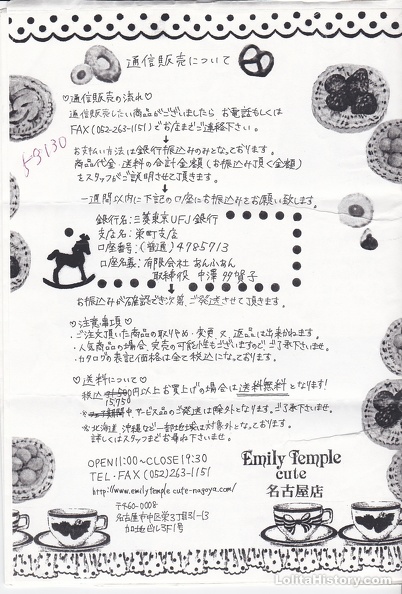 通信販売について
♡通信販売の流れ♡
通信販売したい商品がございましたら お電話もしくは
FAX(052-263-1151)でお店までご連絡下さい。
↓
お支払い方法は銀行振込みのみとなっております。
商品代金・送料の合計金額(お振込み頂く金額)
をスタッフがご説明させて頂きます。
↓
一週間以内に下記の口座にお振込みをお願い致します。
銀行名:三菱東京UFJ銀行
支店名:栄町支店
口座番号:(普通)4785713
口座名義:有限会社 あんふぁん
取締役 中澤
↓
お振込みが確認でき次第、ご発送させて頂きます。
♡注意事項♡
・ご注文頂いた商品の取りやめ・変更、又、返品は出来かねます。
・人気商品の場合、完売の可能性もございますので、ご了承下さいませ。
・カタログの表記価格は全て税込になっております。
♡送料について♡
税込 15,750円以上お買上げの場合は送料無料となります!
中、サービス品のご発送は除外となります。ご了承下さいませ。
※北海道、沖縄など一部地域は対象外となっております。
詳しくはスタッフまでお尋ね下さいませ。
OPEN 11:00〜CLOSE 19:30
TEL・FAX (052) 263-1151
http://www.emilytemple-cute-nagoya.com/
〒460-0008
名古屋市中区栄3丁目31-13
Emily Temple
cute
名古屋店
LolitaHistory.com